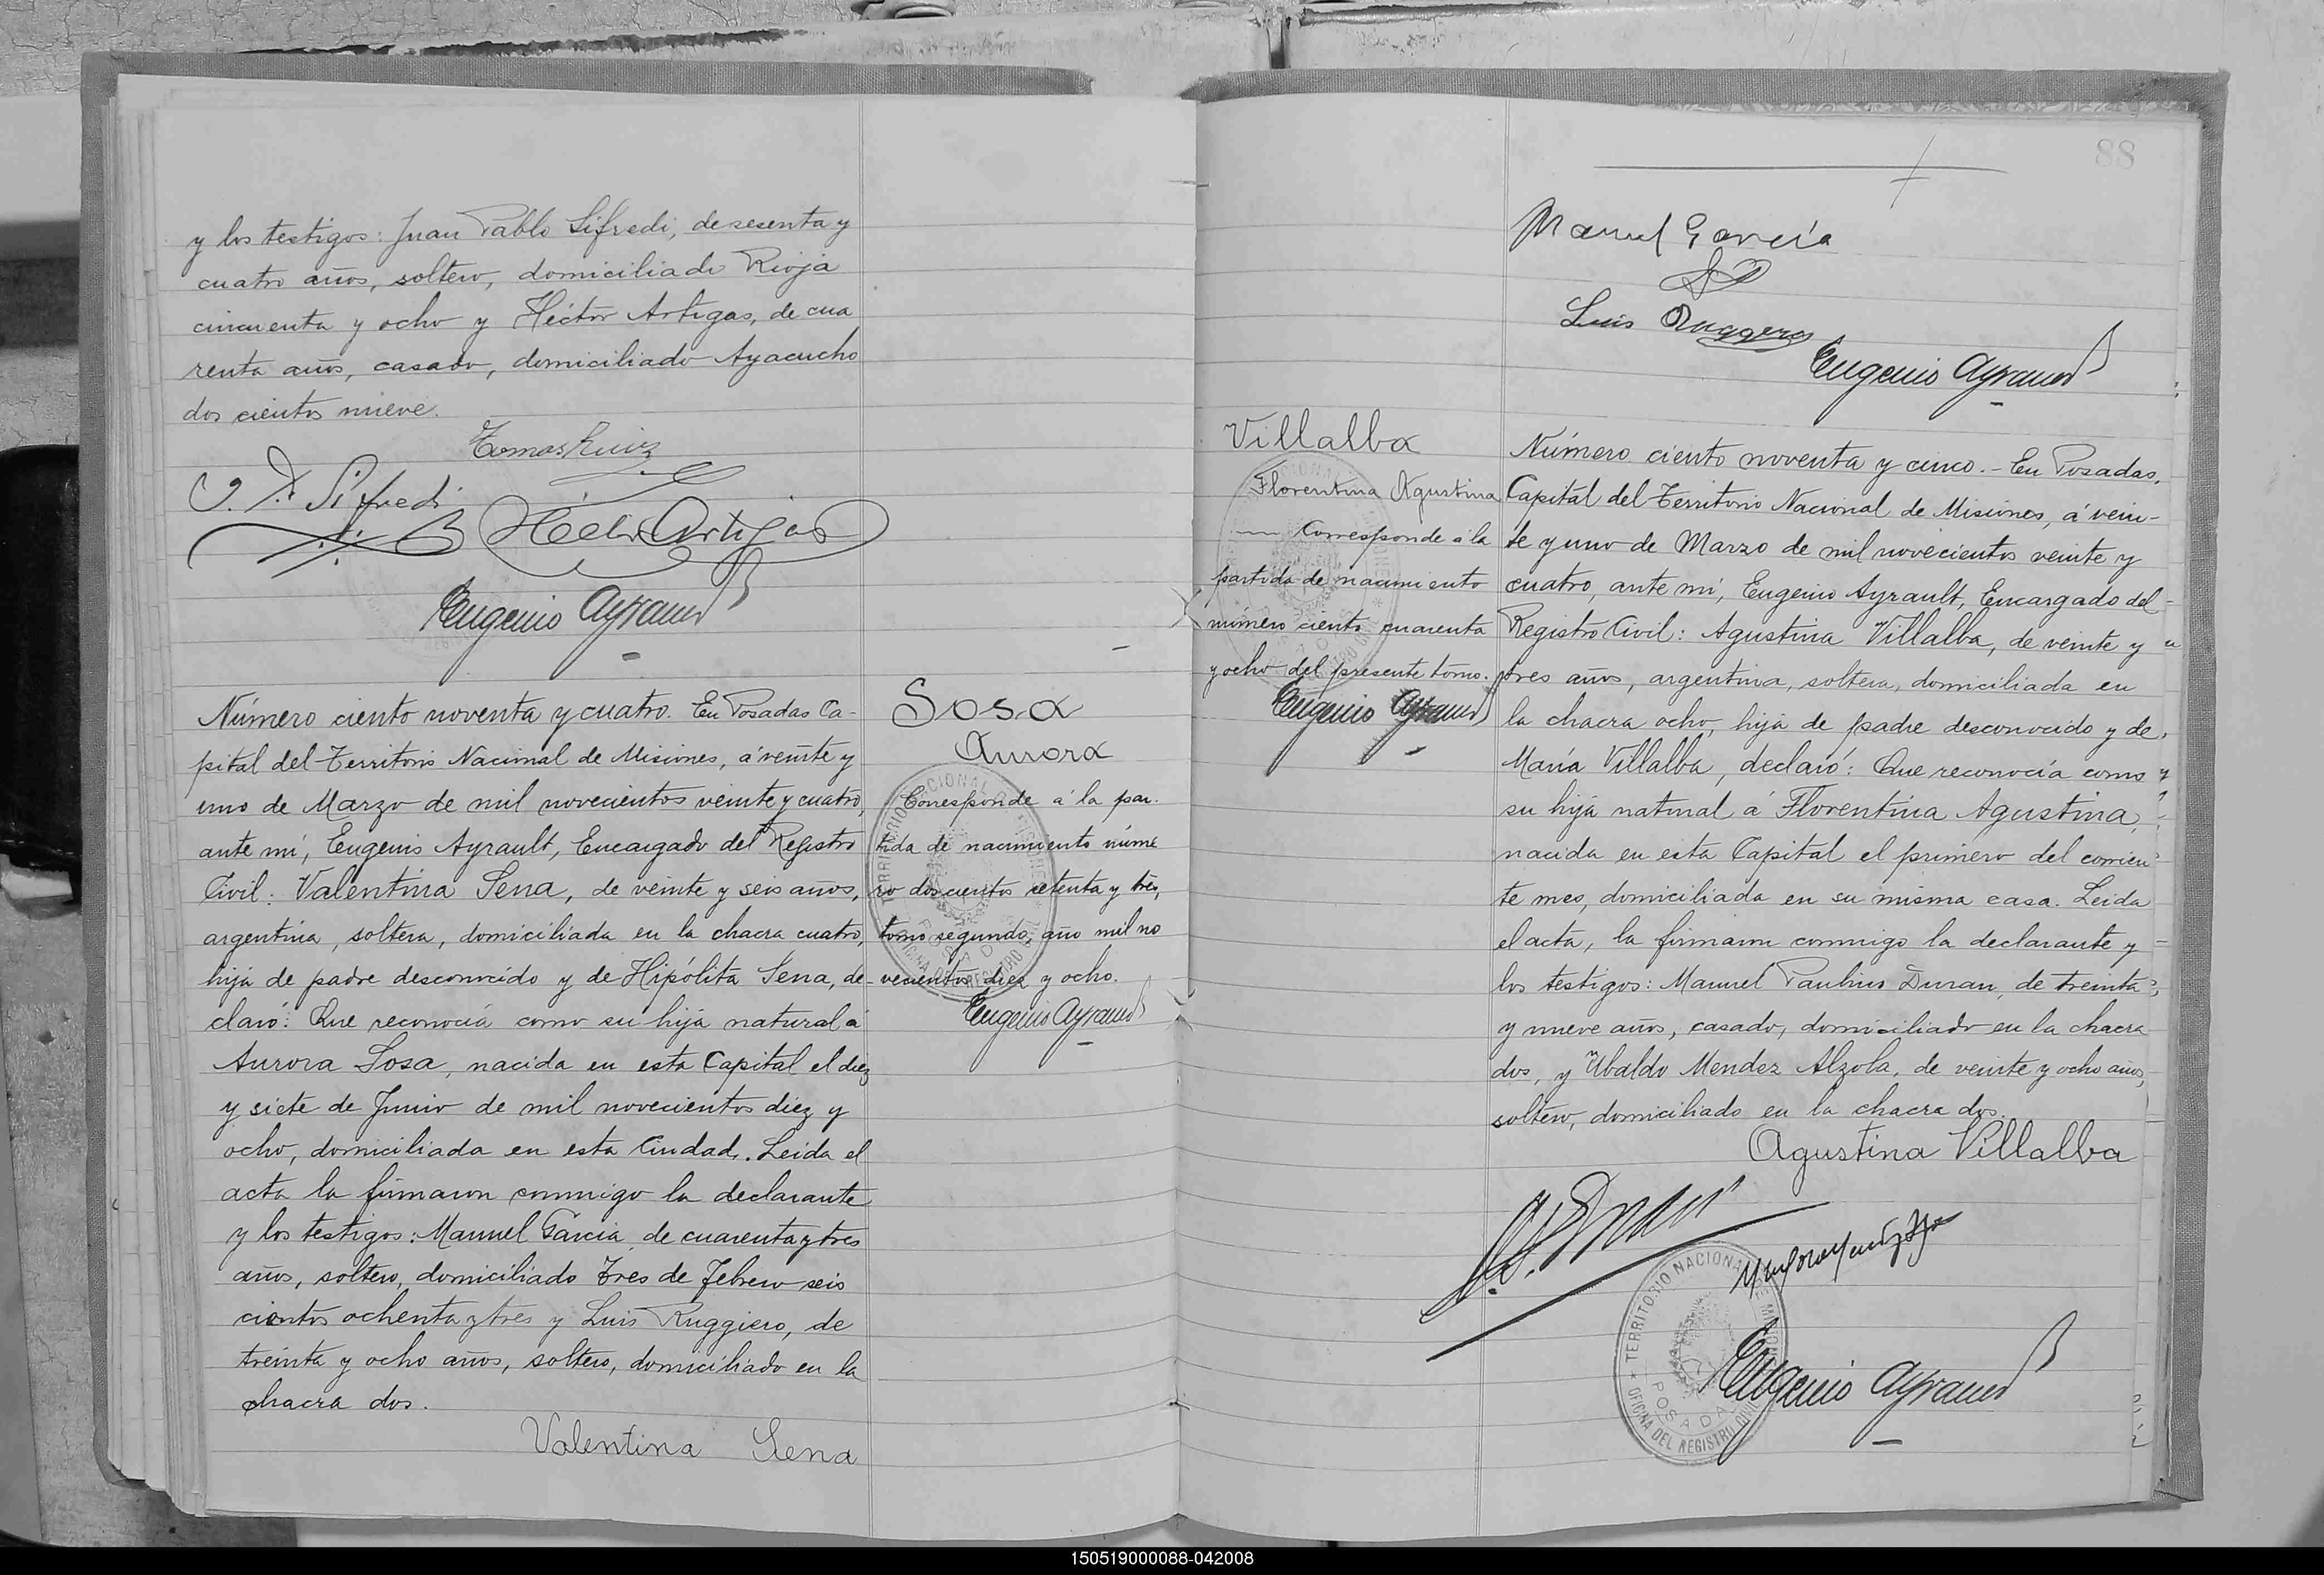 y los testigos: Juan Pablo Sifredi, de sesenta y
cuatro años, soltero, domiciliado Rioja
cincuenta y ocho y Héctor Artigas, de cua
renta años, casado, domiciliado Ayacucho
dos cientos nueve.
Tomas Ruiz
J. P. Sifredi
Héctor Artigas
Eugenio Ayrault
Número ciento noventa y cuatro. En Posadas Ca-
pital del Territorio Nacional de Misiones, á veinte y
uno de Marzo de mil novecientos veinte y cuatro,
ante mí, Eugenio Ayrault, Encargado del Registro
Civil: Valentina Sena, de veinte y seis años,
argentina, soltera, domiciliada en la chacra cuatro,
hija de padre desconocido y de Hipólita Sena, de-
claró: Que reconocía como su hija natural á
Aurora Sosa, nacida en esta Capital el diez
y siete de Junio de mil novecientos diez y
ocho, domiciliada en esta Ciudad. Leida el
acta la firmaron conmigo la declarante
y los testigos: Manuel García, de cuarenta y tres
años, soltero, domiciliado Tres de Febrero seis
cientos ochenta y tres y Luis Ruggiero, de
treinta y ocho años, soltero, domiciliado en la
chacra dos.
Valentina Sena
Sosa
Aurora
Corresponde á la par-
tida de nacimiento núme
ro doscientos setenta y tres,
tomo segundo, año mil no
vecientos diez y ocho.
Eugenio Ayrault
88
Manuel García
Luis Ruggero
Eugenio Ayrault
Villalba
Florentina Agustina
Corresponde á la
partida de nacimiento
número ciento cuarenta
y ocho del presente tomo.
Eugenio Ayrault
Número ciento noventa y cinco.- En Posadas,
Capital del Territorio Nacional de Misiones, á vein-
te y uno de Marzo de mil novecientos veinte y
cuatro, ante mí, Eugenio Ayrault, Encargado del
Registro Civil: Agustina Villalba, de veinte y
tres años, argentina, soltera, domiciliada en
la chacra ocho, hija de padre desconocido y de
María Villalba, declaró: Que reconocía como
su hija natural á Florentina Agustina,
nacida en esta Capital el primero del corrien
te mes, domiciliada en su misma casa. Leida
el acta, la firmaron conmigo la declarante y
los testigos: Manuel Paulino Duran, de treinta
y nueve años, casado, domiciliado en la chacra
dos, y Ubaldo Mendez Alzola, de veinte y ocho años,
soltero, domiciliado en la chacra dos.
Agustina Villalba
TERRITORIO NACIONAL DE MISIONES
POSADAS
OFICINA DEL REGISTRO CIVIL
Eugenio Ayrault
150519000088-042008